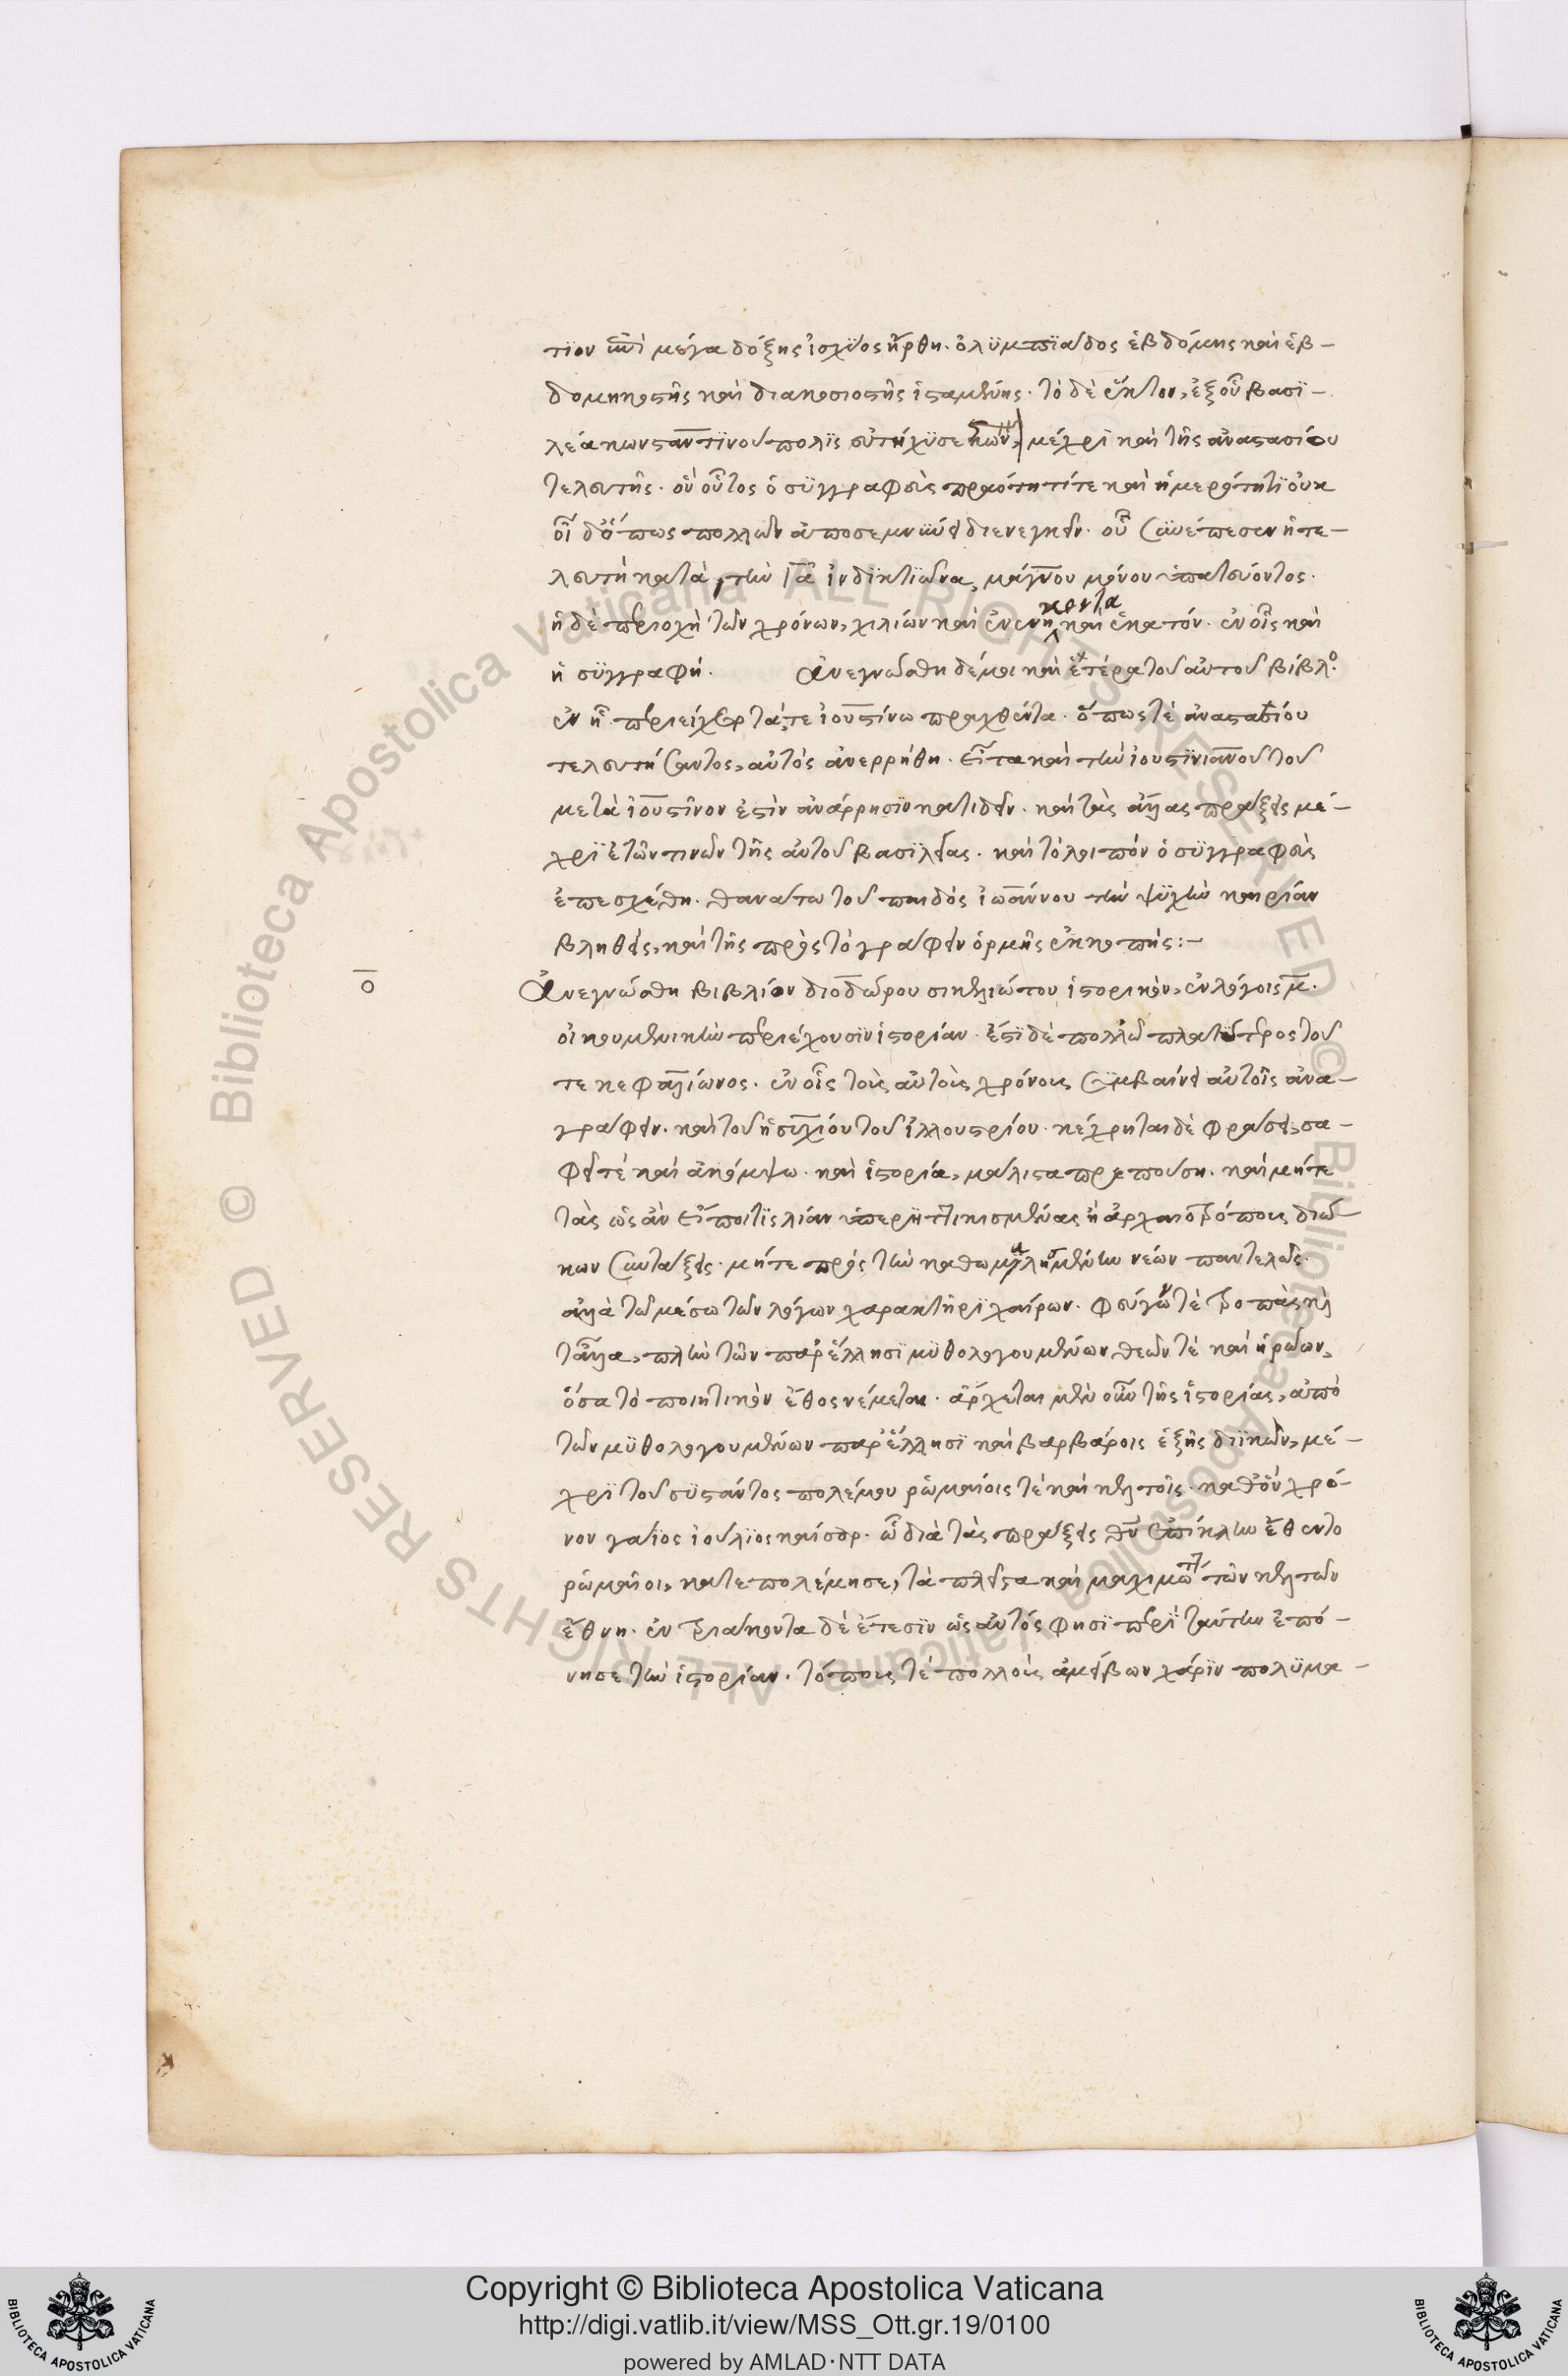 τιον ἐπὶ μέγα δόξης ἰσχύος ἤρθη. ὀλϋμπϊάδος ἑβδόμης καὶ ἑβ-
δομηκοστῆς καὶ διακοσιοστῆς ἱσταμένης. τὸ δὲ ἕκτον, ἐξ οὗ βασϊ-
λέα κωνσταντίνου πόλϊς εὐτύχϋσε μέχρϊ καὶ τῆς ἀναστασίου
τελευτῆς. ὃν οὗτος ὁ σϋγγραφεὺς πραότητί τε καὶ ἡμερότητϊ οὐκ
οἶδ' ὅπως πολλῶν ἀποσεμνύνει διενεγκεῖν. οὗ συνέπεσεν ἡ τε-
λευτὴ κατὰ τὴν ια ἰνδϊκτϊῶνα, μάγνου μόνου ὑπατεύοντος.
ἡ δὲ περιοχὴ τῶν χρόνων, χιλίων καὶ ἐνενήκοντα καὶ ἑκατόν. ἐν οἷς καὶ
ἡ σϋγγραφή. Ἀνεγνώσθη δέ μοι καὶ ἑτέρα τοῦ αὐτοῦ βίβλο.
ἐν ᾗ περιείχετο τά τε ἰουστίνω πραχθέντα. ὅπως τὲ ἀναστασίου
τελευτήσαντος, αὐτὸς ἀνερρήθη. εἶτα καὶ τὴν ἰουστϊνιανοῦ τοῦ
μετὰ ἰουστῖνον ἐστὶν ἀνάρρησϊν κατιδεῖν. καὶ τὰς ἄλλας πράξεις μέ-
χρϊ ἐτῶν τινῶν τῆς αὐτοῦ βασϊλείας. καὶ τὸ λοιπὸν ὁ σϋγγραφεὺς
ἐπεσχέθη. θανάτω τοῦ παιδός ἰωάννου τὴν ψϋχὴν καιρίαν
βληθείς, καὶ τῆς πρὸς τὸ γράφειν ὁρμῆς ἐκκοπείς:-
ο
Ἀνεγνώσθη βιβλίον διοδώρου σικελιώτου ἱστορικὸν, ἐν λόγοις μ.
οἰκουμενικὴν περιέχουσϊν ἱστορίαν. ἔστϊ δὲ πολλῶ πλατύτερος τοῦ
τε κεφαλίωνος. ἐν οἷς τοῖς αὐτοῖς χρόνοις συμβαίνει αὐτοῖς ἀνα-
γράφειν. καὶ τοῦ ἡσυχίου τοῦ ἰλλουστρίου. κέχρηται δὲ φράσει, σα-
φεῖ τὲ καὶ ἀκόμψω. καὶ ἱστορία, μάλιστα πρεπούση. καὶ μήτε
τὰς ὡς ἂν εἴποι τϊς λίαν ὑπερηττικισμένας ἢ ἀρχαιοτρόποις διώ-
κων συντάξεις. μήτε πρὸς τὴν καθωμιλημένην νεύων παντελῶς.
ἀλλὰ τῶ μέσω τῶν λόγων χαρακτῆρϊ χαίρων. φεύγων τὲ τροπὰς καὶ
τἄλλα, πλὴν τῶν παρ' ἕλλησϊ μϋθολογουμένων, θεῶν τὲ καὶ ἡρώων,
ὅσα τὸ ποιητικὸν ἔθος νέμεται. ἄρχεται μὲν οὖν τῆς ἱστορίας, ἀπὸ
τῶν μϋθολογουμένων παρ' ἕλλησϊ καὶ βαρβάροις ἑξῆς διϊκὼν, μέ-
χρϊ τοῦ σϋστάντος πολέμου ῥωμαίοις τὲ καὶ κελτοῖς. καθ' ὃν χρό-
νον γαῖος ἰούλϊος καίσαρ. ὧ διὰ τὰς πράξεις θεῖον ἐπίκλην ἔθεντο
ῥωμαῖοι, κατεπολέμησε, τὰ πλεῖστα καὶ μαχιμώτατα τῶν κελτῶν
ἔθνη. ἐν τριάκοντα δὲ ἔτεσϊν ὡς αὐτός φησϊ περὶ ταύτην ἐπό-
νησε τὴν ἱστορίαν. τόποις τὲ πολλοῖς ἀμείβων χάρϊν πολϋμα-
Copyright © Biblioteca Apostolica Vaticana
http://digi.vatlib.it/view/MSS_Ott.gr.19/0100
powered by AMLAD·NTT DATA
BIBLIOTECA APOSTOLICA VATICANA
BIBLIOTECA APOSTOLICA VATICANA
© Biblioteca Apostolica Vaticana ALL RIGHTS RESERVED
© Biblioteca Apostolica Vaticana ALL RIGHTS RESERVED